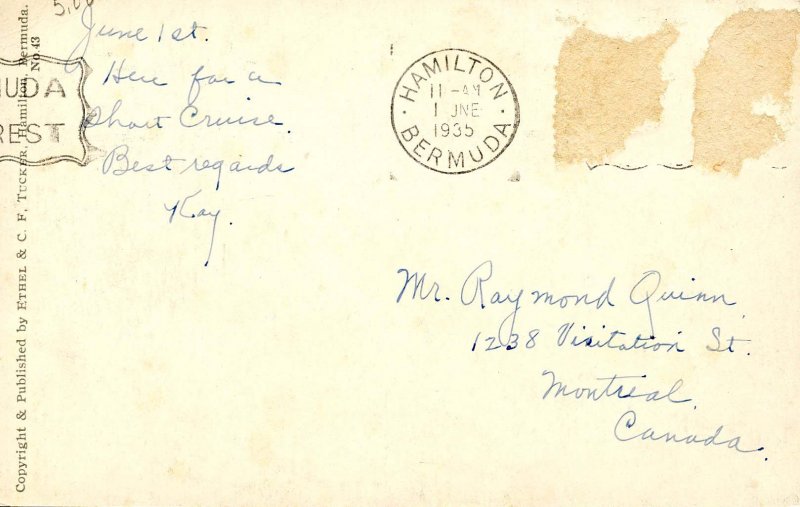 5.00
June 1st.
Here for a
short Cruise.
Best regards
Kay.
UDA
REST
HAMILTON
11 - AM
1 JNE
1935
BERMUDA
Mr. Raymond Quinn,
1238 Visitation St.
Montreal,
Canada.
Copyright & Published by ETHEL & C. F. TUCKER, Hamilton, Bermuda.
No. 43